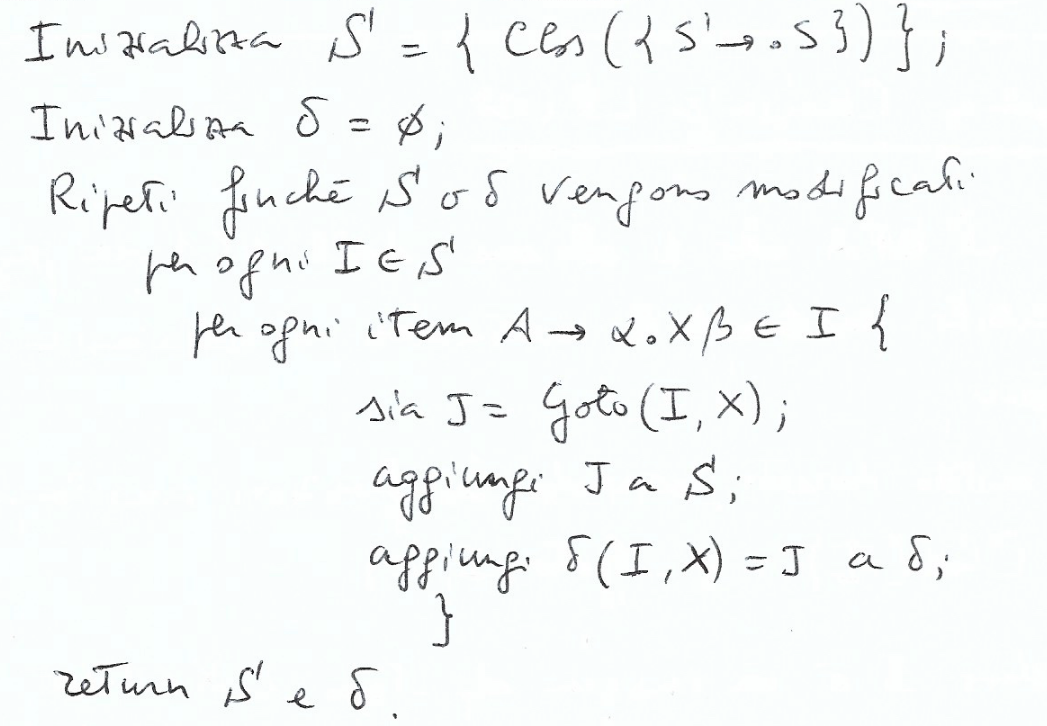 Inizializza S = { Clos({S'→.S}) };
Inizializza δ = ∅;
Ripeti finché S o δ vengono modificati
per ogni I ∈ S
per ogni item A → α.Xβ ∈ I {
sia J = Goto(I, X);
aggiungi J a S;
aggiungi δ(I, X) = J a δ;
}
return S e δ.